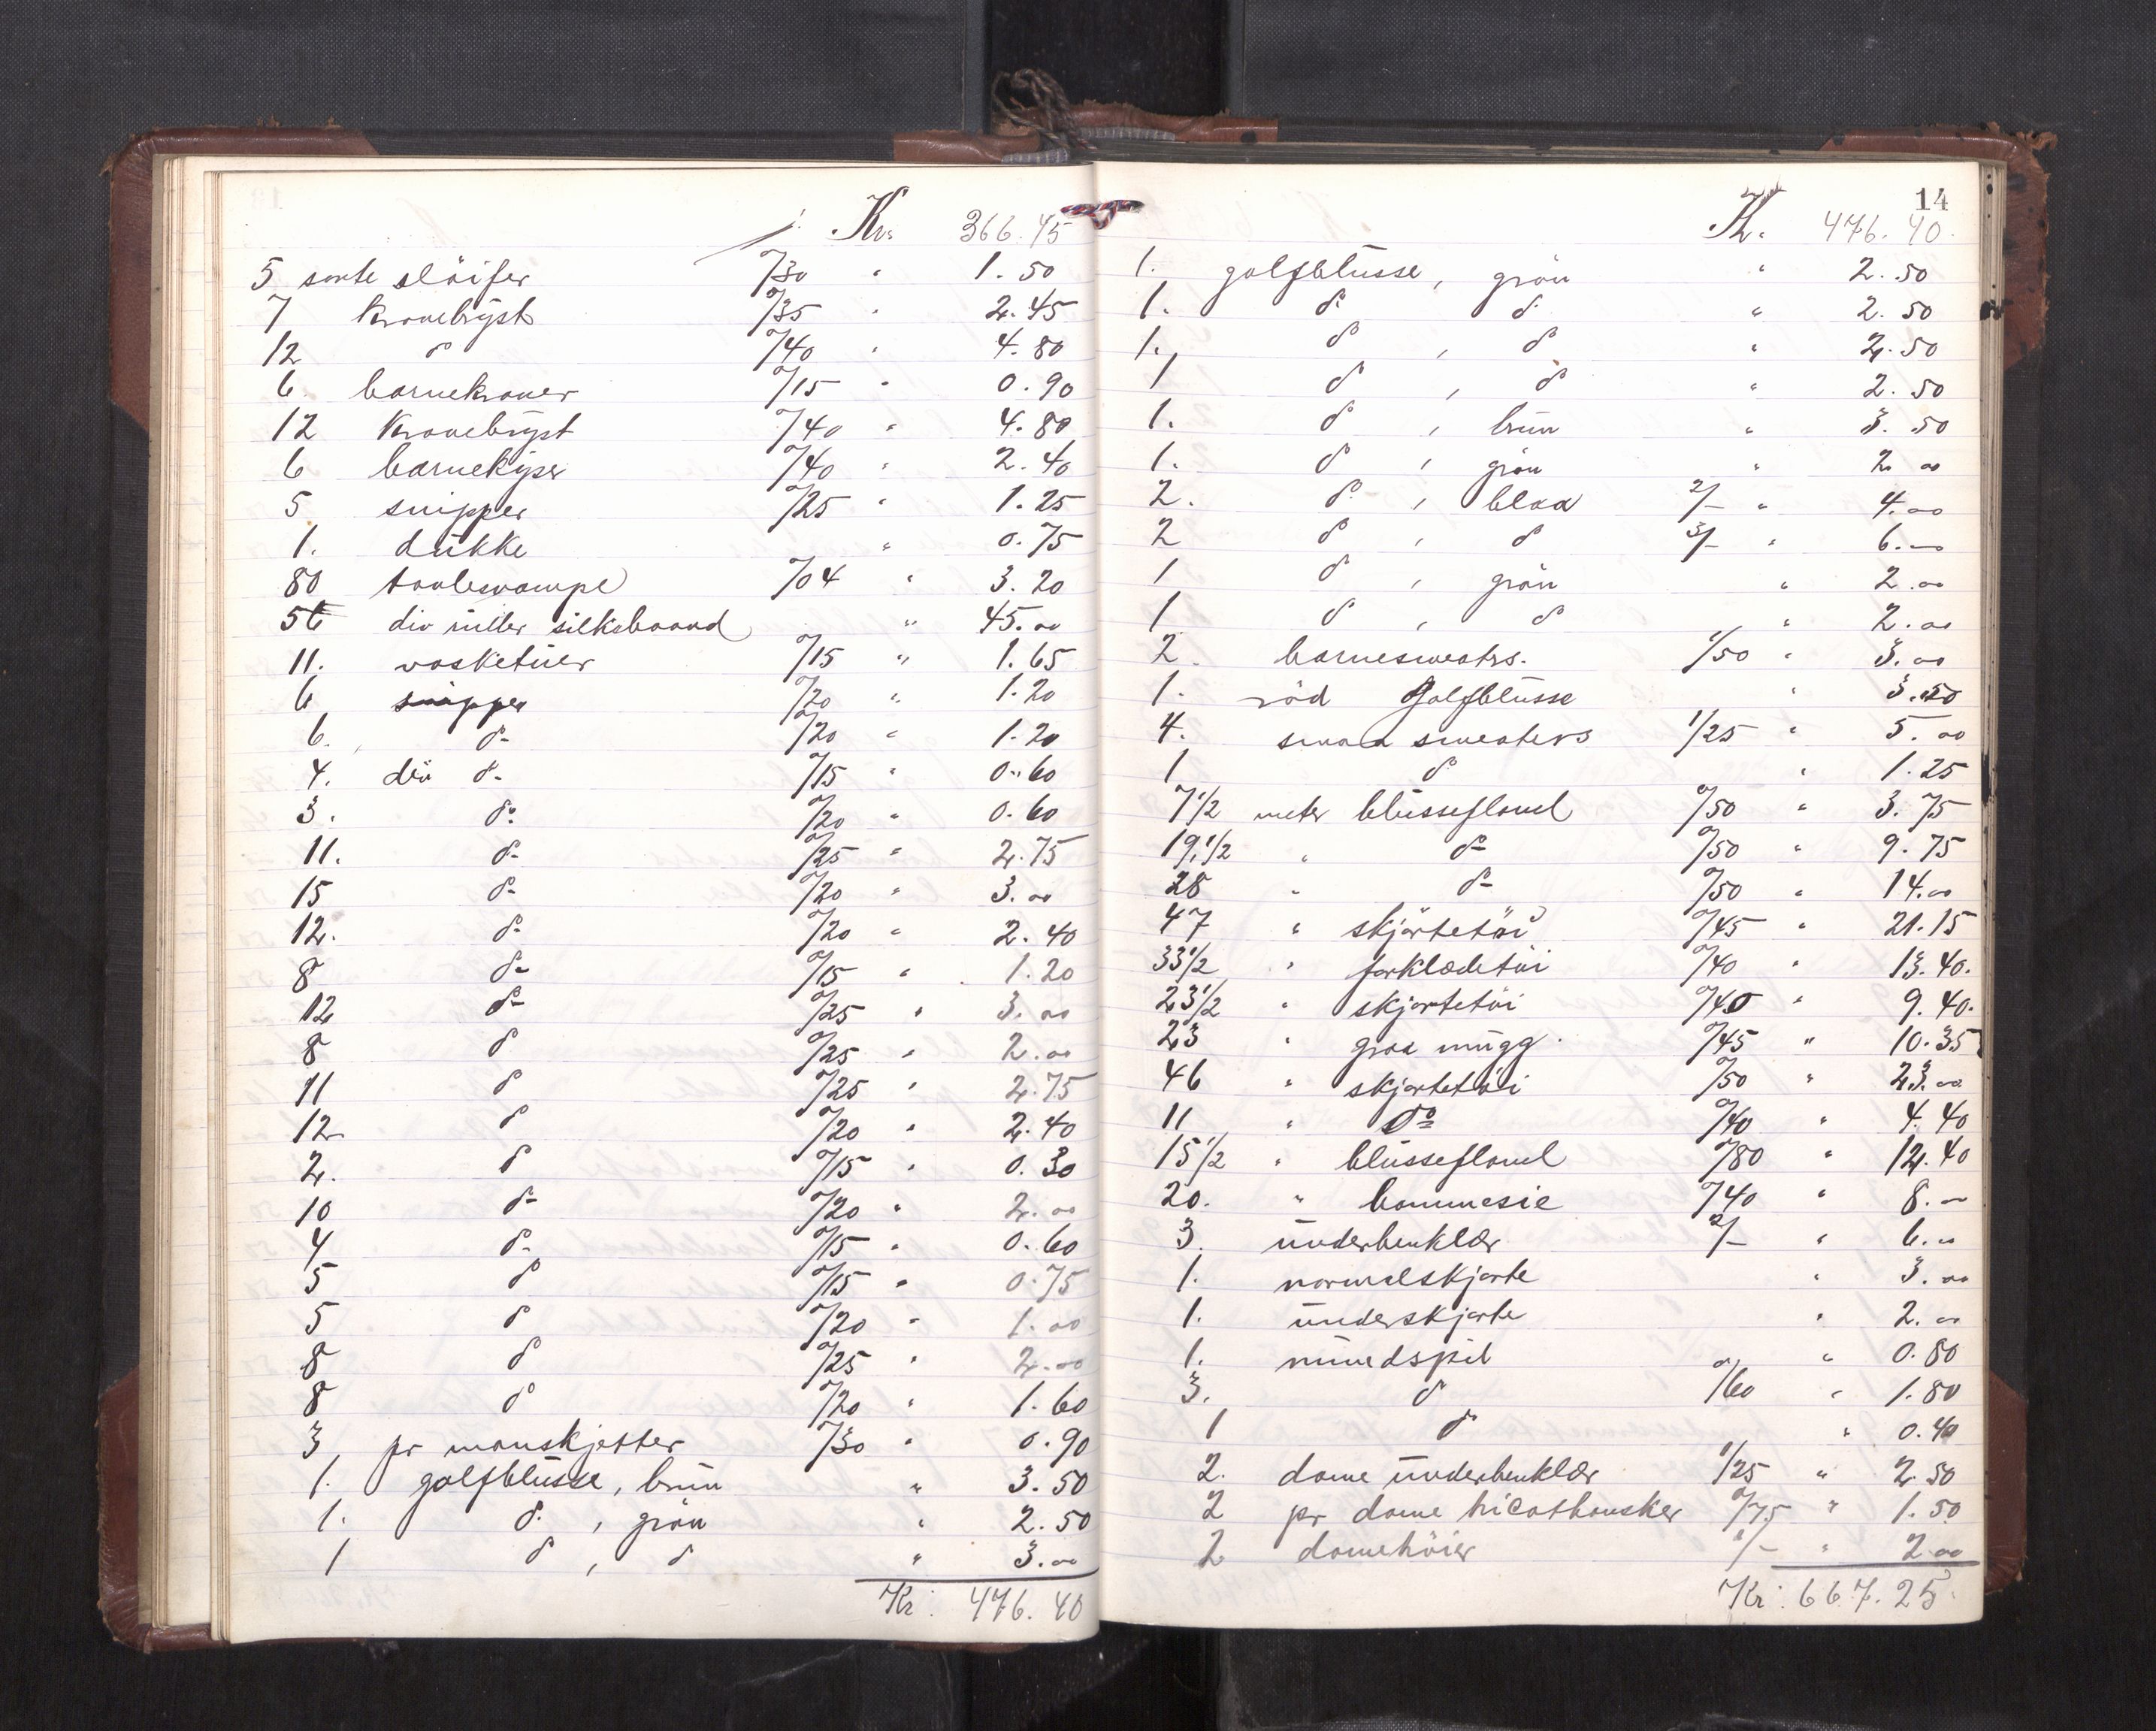 Kr. 366.45
5 sorte slöifer 0/30 " 1.50
7 Kravebryst 0/35 " 2.45
12 do 0/40 " 4.80
6 barnekraver 0/15 " 0.90
12 Kravebryst 0/40 " 4.80
6 barnekyser 0/40 " 2.40
5 snipper 0/25 " 1.25
1. dukke " 0.75
80 tavlesvampe 0/04 " 3.20
56 div ruller silkebaand " 45.00
11. vasketuer 0/15 " 1.65
6 snipper 0/20 " 1.20
6. do 0/20 " 1.20
4. div do 0/15 " 0.60
3. do 0/20 " 0.60
11. do 0/25 " 2.75
15 do 0/20 " 3.00
12. do 0/20 " 2.40
8 do 0/15 " 1.20
12 do 0/25 " 3.00
8 do 0/25 " 2.00
11 do 0/25 " 2.75
12 do 0/20 " 2.40
2. do 0/15 " 0.30
10 do 0/20 " 2.00
4 do 0/15 " 0.60
5 do 0/15 " 0.75
5 do 0/20 " 1.00
8 do 0/25 " 2.00
8 do 0/20 " 1.60
3 pr manskjetter 0/30 " 0.90
1. golfblusse, brun " 3.50
1. do, grön " 2.50
1 do, do " 3.00
Kr. 476.40
14
Kr. 476.40
1. golfblusse, grön " 2.50
1. do do " 2.50
1. do, do " 2.50
1 do, do " 2.50
1. do, brun " 3.50
1. do, grön " 2.00
2. do, blaa 2/- " 4.00
2 do, do 3/- " 6.00
1 do, grön " 2.00
1 do, do " 2.00
2 barnesweatrs. 1/50 " 3.00
1. röd Golfblusse " 3.50
4. smaa sweaters 1/25 " 5.00
1 do " 1.25
7 1/2 meter blusseflanel 0/50 " 3.75
19 1/2 " do 0/50 " 9.75
28 " do 0/50 " 14.00
47 " skjörtetöi 0/45 " 21.15
33 1/2 " forklædetöi 0/40 " 13.40.
23 1/2 " skjortetöi 0/40 " 9.40.
23 " graa mugg. 0/45 " 10.35
46 " skjortetöi 0/50 " 23.00
11 " do 0/40 " 4.40
15 1/2 " blusseflanel 0/80 " 12.40
20. " bommesie 0/40 " 8.00
3. underbenklær 2/- " 6.00
1. normalskjorte " 3.00
1. underskjorte " 2.00
1. mundspil " 0.80
3. do 0/60 " 1.80
1 do " 0.40
2. dame underbenklær 1/25 " 2.50
2 pr dame tricothansker 0/75 " 1.50
2 dametröier 1/- " 2.00
Kr. 667.25